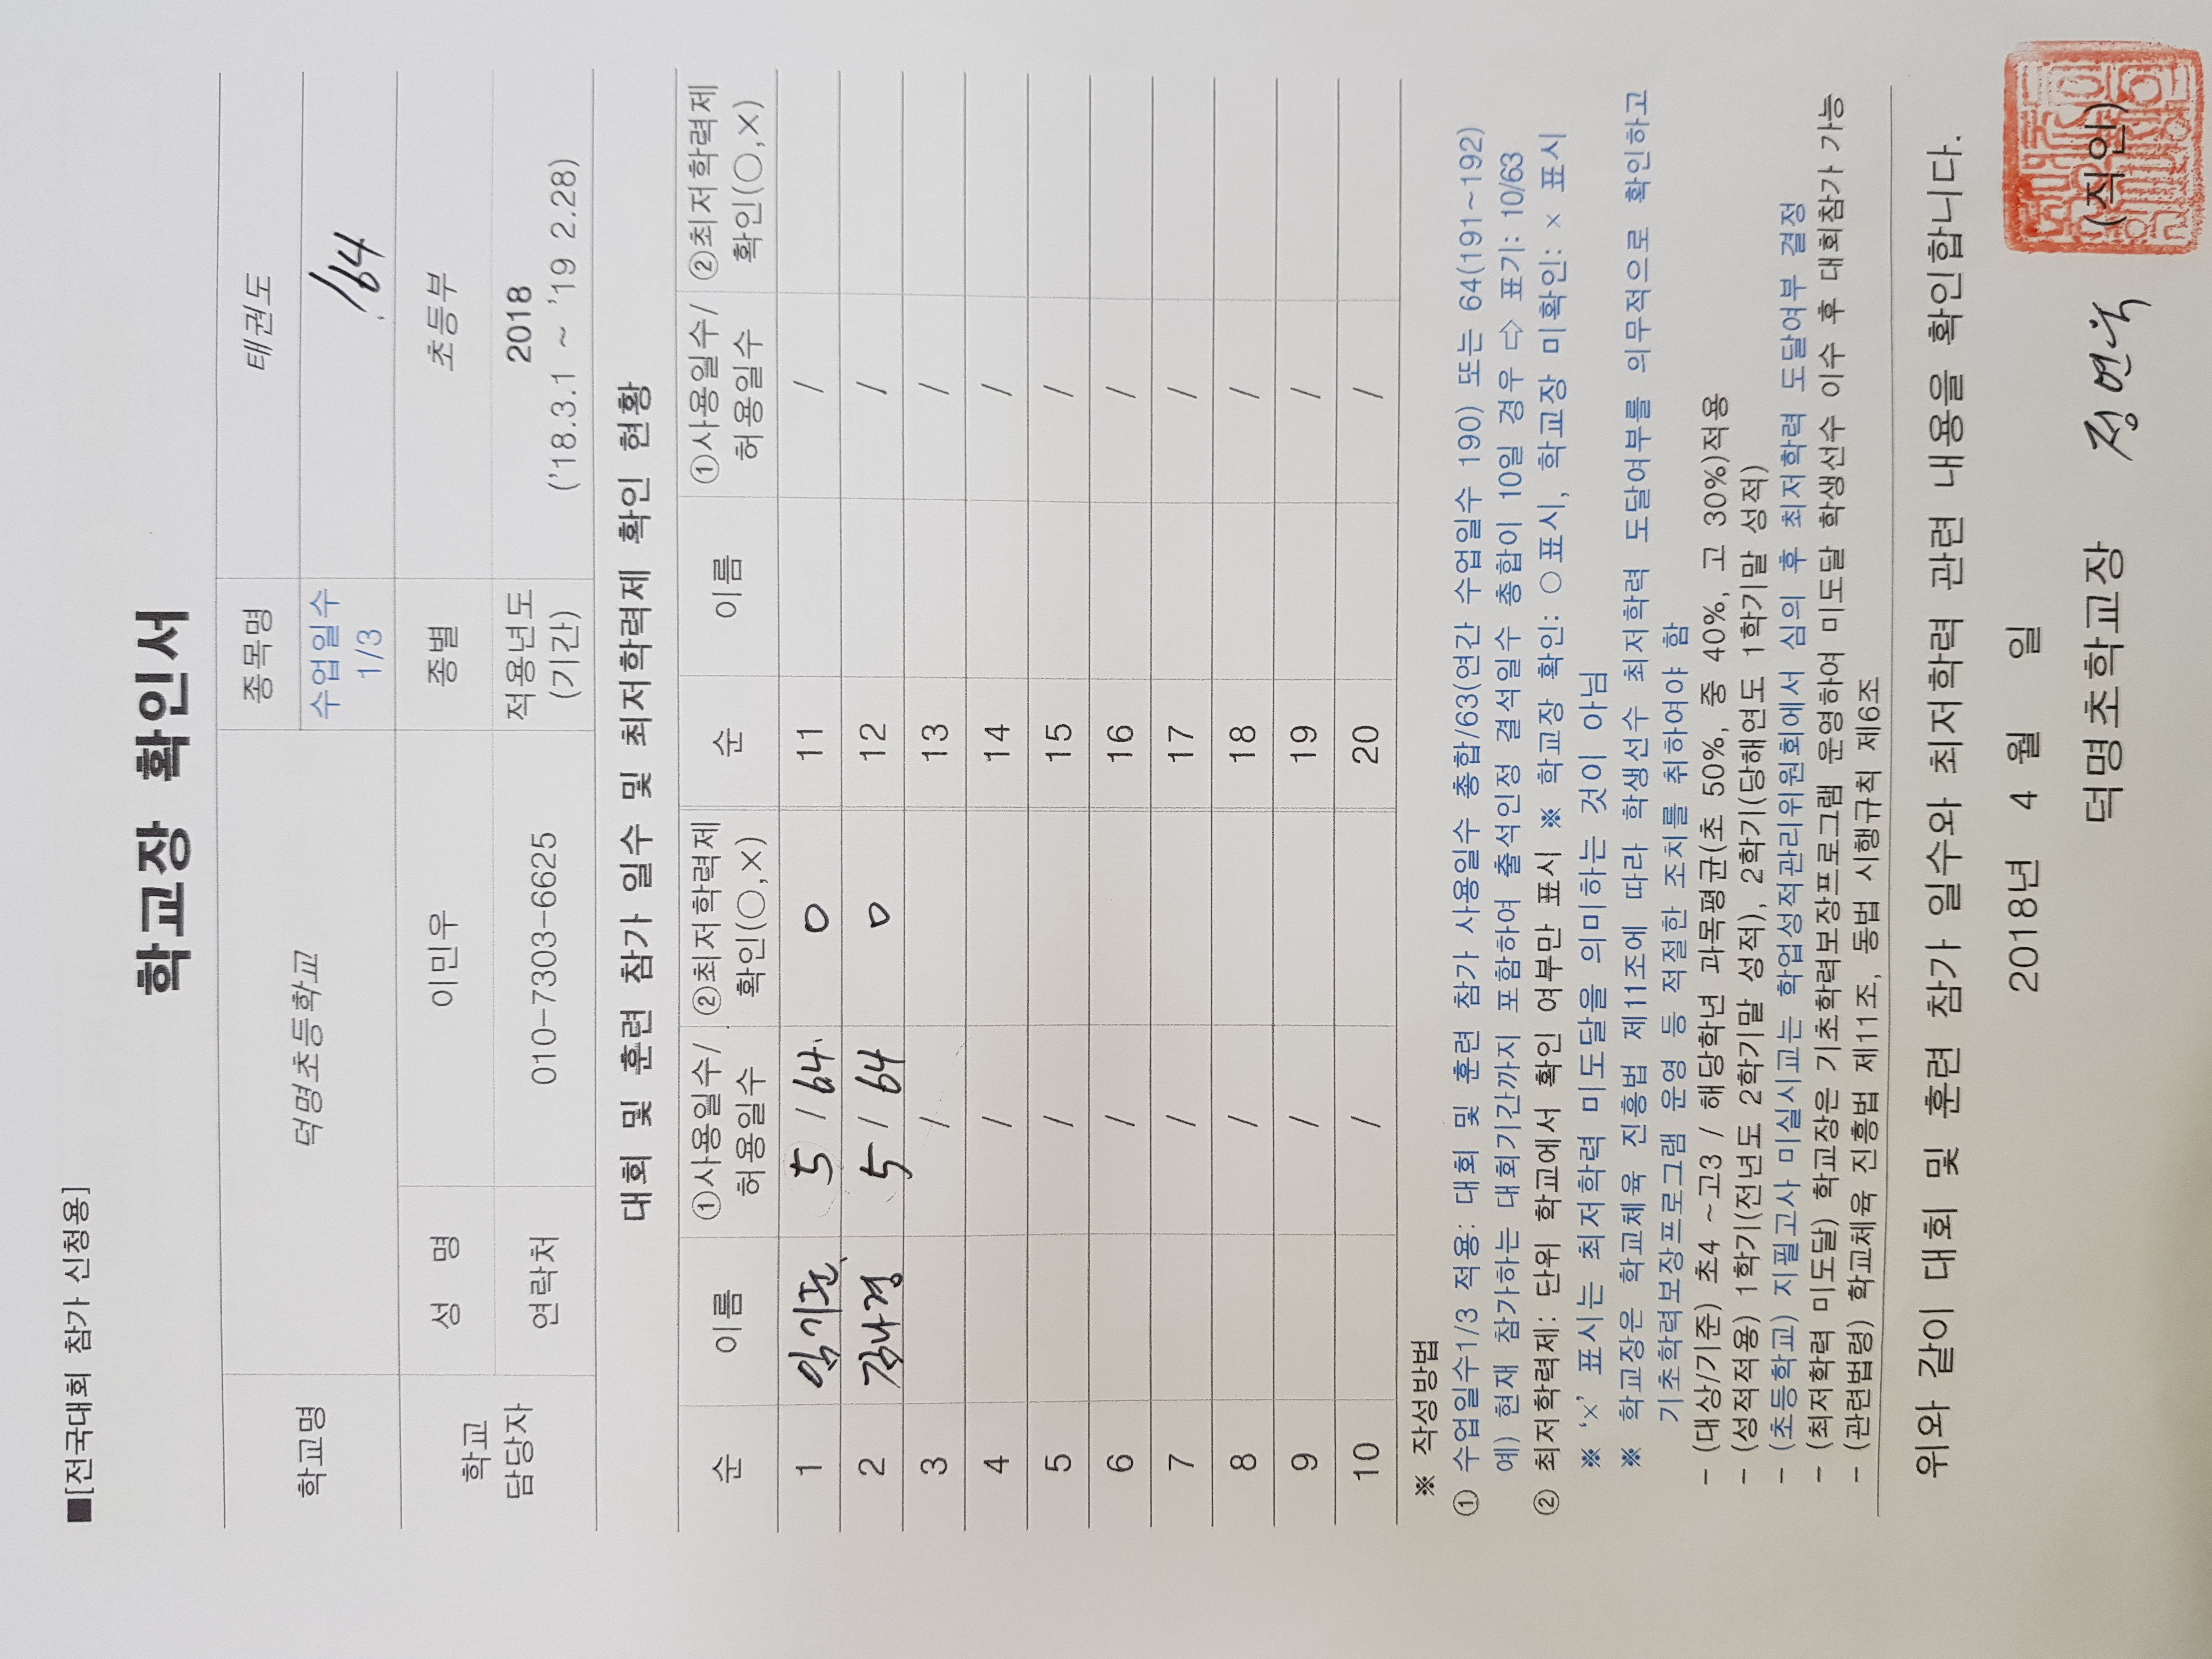 ■[전국대회 참가 신청용]
학교장 확인서
학교명 덕명초등학교 종목명 태권도
수업일수 1/3 /64
학교 담당자 성 명 이민우 종별 초등부
연락처 010-7303-6625 적용년도 (기간) 2018 ('18.3.1 ~ '19 2.28)
대회 및 훈련 참가 일수 및 최저학력제 확인 현황
순 이름 ①사용일수/허용일수 ②최저학력제 확인(○,×) 순 이름 ①사용일수/허용일수 ②최저학력제 확인(○,×)
1 5 / 64 0 11 /
2 김나경 5 / 64 0 12 /
3 / 13 /
4 / 14 /
5 / 15 /
6 / 16 /
7 / 17 /
8 / 18 /
9 / 19 /
10 / 20 /
※ 작성방법
① 수업일수1/3 적용: 대회 및 훈련 참가 사용일수 총합/63(연간 수업일수 190) 또는 64(191~192)
예) 현재 참가하는 대회기간까지 포함하여 출석인정 결석일수 총합이 10일 경우 ⇨ 표기: 10/63
② 최저학력제: 단위 학교에서 확인 여부만 표시 ※ 학교장 확인: ○표시, 학교장 미확인: × 표시
※ '×' 표시는 최저학력 미도달을 의미하는 것이 아님
※ 학교장은 학교체육 진흥법 제11조에 따라 학생선수 최저학력 도달여부를 의무적으로 확인하고
기초학력보장프로그램 운영 등 적절한 조치를 취하여야 함
- (대상/기준) 초4 ~고3 / 해당학년 과목평균(초 50%, 중 40%, 고 30%)적용
- (성적적용) 1학기(전년도 2학기말 성적), 2학기(당해연도 1학기말 성적)
- (초등학교) 지필고사 미실시교는 학업성적관리위원회에서 심의 후 최저학력 도달여부 결정
- (최저학력 미도달) 학교장은 기초학력보장프로그램 운영하여 미도달 학생선수 이수 후 대회참가 가능
- (관련법령) 학교체육 진흥법 제11조, 동법 시행규칙 제6조
위와 같이 대회 및 훈련 참가 일수와 최저학력 관련 내용을 확인합니다.
2018년 4 월 일
덕명초학교장 정연욱 (직인)